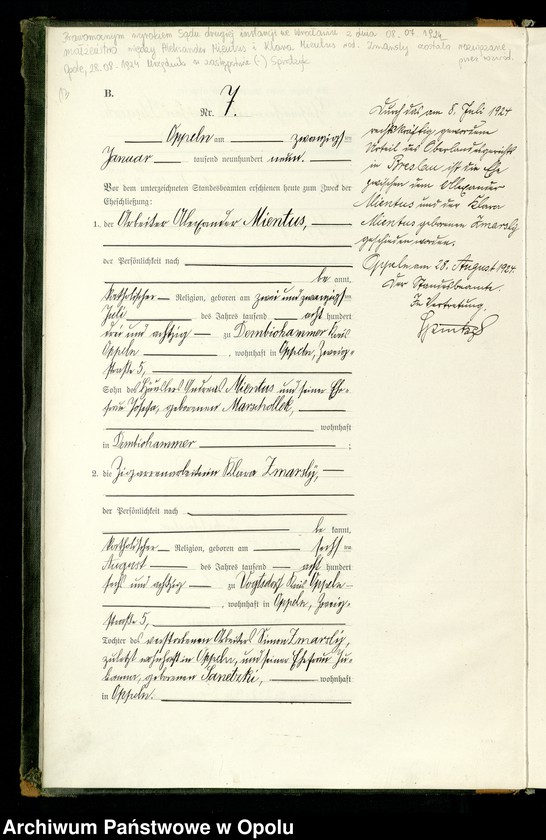 Prawomocnym wyrokiem Sądu drugiej instancji we Wrocławiu z dnia 08.07.1924
małżeństwo między Aleksander Mientus i Klara Mientus ur. Zmarsly zostało rozwiązane
Opole, 28.08.1924 Urzędnik w zastępstwie (-)
B.
Nr. 7.
Oppeln am zwanzigsten
Januar tausend neunhundert neun.
Vor dem unterzeichneten Standesbeamten erschienen heute zum Zweck der
Eheschließung:
1. der Arbeiter Alexander Mientus,
der Persönlichkeit nach
be kannt,
katholischer Religion, geboren am zwei und zwanzigsten
Juli des Jahres tausend acht hundert
drei und achtzig zu Dembiohammer Kreis
Oppeln, wohnhaft in Oppeln, Zweig-
straße 5,
Sohn des Häuslers Andreas Mientus und seiner Ehe-
frau Josefa, geborenen Marschollek,
wohnhaft
in Dembiohammer ;
2. die Zigarrenarbeiterin Klara Zmarslÿ,
der Persönlichkeit nach
be kannt,
katholischer Religion, geboren am sechsten
August des Jahres tausend acht hundert
sechs und achtzig zu Vogtsdorf Kreis Oppeln
, wohnhaft in Oppeln, Zweig-
straße 5,
Tochter des verstorbenen Arbeiters Simon Zmarslÿ,
zuletzt wohnhaft in Oppeln, und seiner Ehefrau Jo-
hanna, geborenen Sanetzki, wohnhaft
in Oppeln.
Durch das am 8. Juli 1924
rechtskräftig gewordene
Urteil des Oberlandesgerichts
in Breslau ist die Ehe
zwischen dem Alexander
Mientus und der Klara
Mientus geborenen Zmarslÿ
geschieden worden.
Oppeln am 28. August 1924.
Der Standesbeamte.
In Vertretung.
Archiwum Państwowe w Opolu